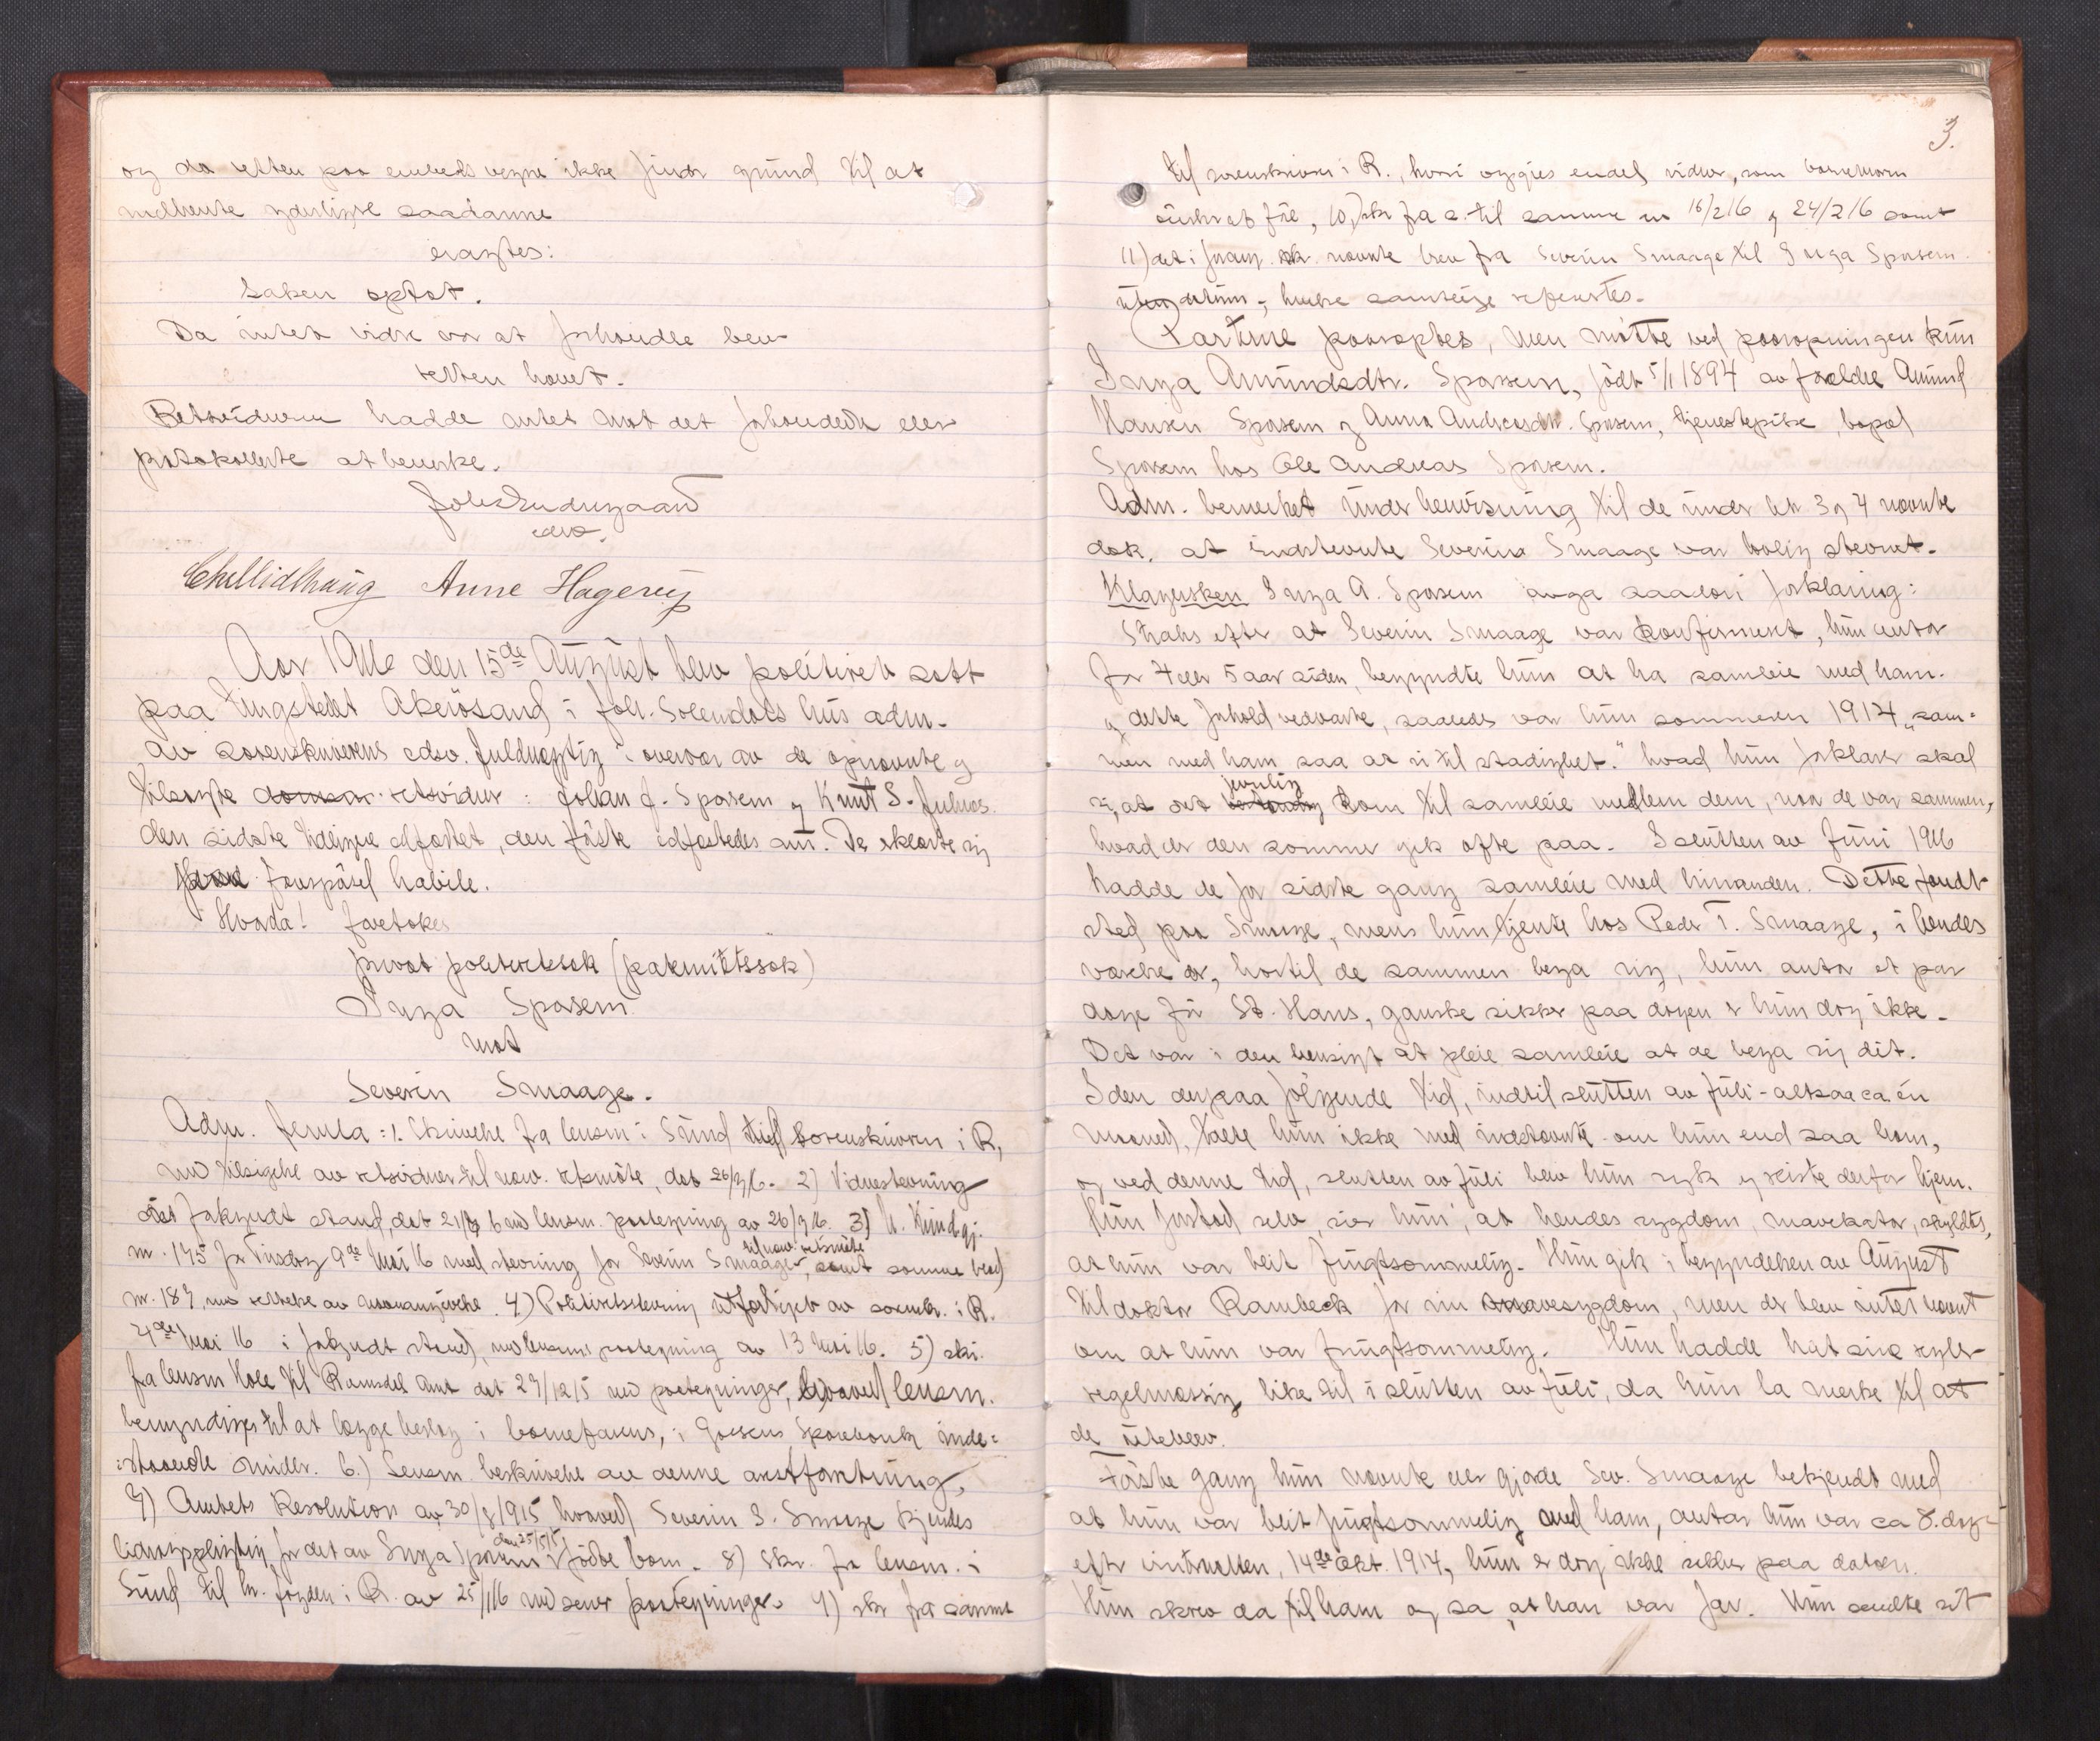 og da retten paa embeds vegne ikke finder grund til at
indhente yderligere saadanne
eragtes:
Saken optat.
Da intet videre var at forhandle blev
retten hævet.
Retsvidnerne hadde intet mot det forhandlede eller
protokollerte at bemerke.
edsv.
Anne Hagerup
Aar 1916 den 15de August blev politiret satt
paa tingstedet Akerøsand i forh. Solemdals hus adm.
av sorenskriverens edsv. fuldmægtig i overvær av de opnævnte og
tilsagte retsvidner: Johan J. Sporsem og Knut S. Julnes.
den sidste tidligere edfæstet, den første edfæstedes nu. De erklærte sig
paa forespørsel habile.
Hvorda! foretokes
privat politiretssak (paternitetssak)
Inga Sporsem
mot
Severin Smaage.
Adm. fremla: 1. Skrivelse fra lensm. i Sund til Sorenskriveren i R,
med tilsigelse av retsvidner til nærv. retsmøte, dat 26/7 16. 2) Vidnestevning
i forkyndt stand, dat 21/7 16 med lensm. paategning av 26/7 16. 3) N. Kundgj.
nr. 175 fra Tirsdag 9de Mai 16 med stevning for Severin Smaage til nærv. retsmøte, samt samme blad
nr. 187, med rettelse av navneangivelse. 4) Politiretsstevning utfærdiget av sorenskr. i R.
4de Mai 16 i forkyndt stand, med lensm's paategning av 13 Mai 16. 5) skr.
fra lensm Hole til Romsdal Amt dat 29/12 15 med paategninger, hvorved lensm.
bemyndiges til at lægge beslag i barnefarens, i Gossens Sparebank inde=
=staaende midler. 6.) Lensm. beskrivelse av denne arrestforretning,
7) Amtets Resolution av 30/8 1915 hvorved Severin S. Smaage kjendes
bidragspligtig for det av Inga Sporsem den 25/5 15 fødte barn. 8) Skr. fra lensm. i
Sund til hr. fogden i R. av 25/1 16 med senere paategninger. 9) skr fra samme
3.
til sorenskriveren i R., hvori opgies endel vidner, som barnemoren
ønsket ført, 10) skr fra s. til samme av 16/2 16 og 24/2 16 samt
11) det i foreg. skr. nævnte brev fra Severin Smaage til Inga Sporsem
uten datum; hvilke samtlige refereertes.
Partene paaroptes, men møtte ved paaropningen kun
Inga Amundsdtr. Sporsem, født 5/1 1894 av forældre Amund
Hansen Sporsem og Anna Andreasdtr. Sporsem, tjenestepike, bopæl
Sporsem hos Ole Andreas Sporsem.
Adm. bemerket under henvisning til de under litr 3 og 4 nævnte
dok. at indstevnte Severin Smaage var lovlig stevnet.
Klagersken Inga A. Sporsem avga saadan forklaring:
Straks efter at Severin Smaage var konfirmert, hun antar
for 4 eller 5 aar siden, begyndte hun at ha samleie med ham.
og dette forhold vedvarte, saaledes var hun sommeren 1914 "sam=
men med ham saa at si til stadighet." hvad hun forklarer skal
si, at det jevnlig kom til samleie mellem dem, naar de var sammen,
hvad der den sommer gik ofte paa. I slutten av Juni 1916
hadde de for sidste gang samleie med hinanden. Dette fandt
sted paa Smaage, mens hun tjente hos Peder T. Smaage, i hendes
værelse der, hortil de sammen bega sig, hun antar et par
dage før St. Hans, ganske sikker paa dagen er hun dog ikke.
Det var i den hensigt at pleie samleie at de bega sig dit.
I den derpaa følgende tid, indtil slutten av Juli - altsaa ca. én
maaned, talte hun ikke med indstevnte om hun end saa ham,
og ved denne tid, slutten av Juli blev hun syk og reiste derfor hjem.
Hun forstod selv, sier hun, at hendes sygdom, mavekatar, skyldtes,
at hun var blit frugtsommelig. Hun gik i begyndelsen av August
til doktor Rambeck for sin mavesygdom, men der blev intet nævnt
om at hun var frugtsommelig. Hun hadde hat sine regler
regelmæssig like til i slutten av Juli, da hun la merke til at
de uteblev.
Første gang hun nævnte eller gjorde Sev. Smaage bekjendt med
at hun var blit frugtsommelig med ham, antar hun var ca 8. dage
efter vinternatten, 14de okt. 1914, hun er dog ikke sikker paa datoen.
Hun skrev da til ham og sa at han var far. Hun sendte sit